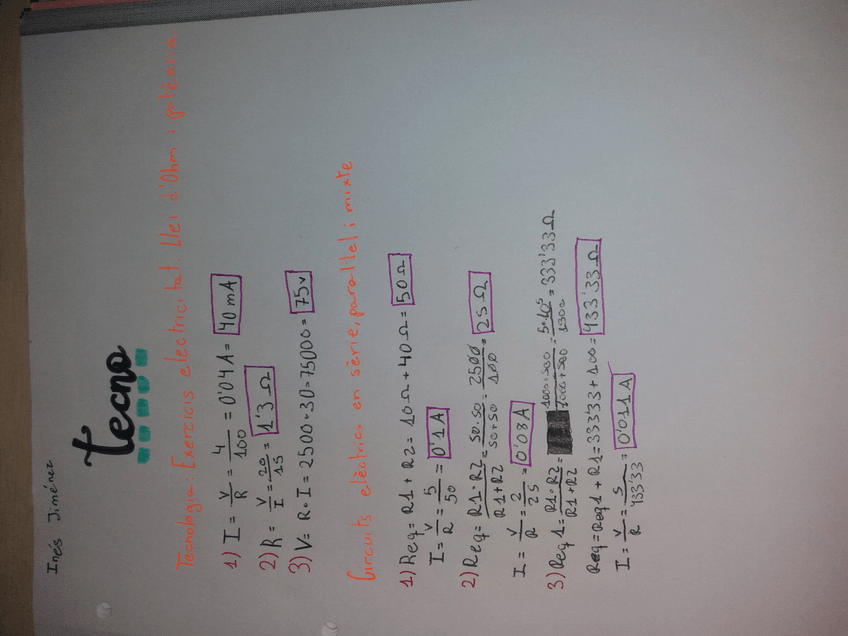 Inés Jiménez
tecno
Tecnologia: Exercicis electricitat. Llei d'Ohm i potència
1) I = V/R = 4/100 = 0'04A = 40 mA
2) R = V/I = 20/15 = 1'3 Ω
3) V = R · I = 2500 · 30 = 75000 = 75v
Circuits elèctrics en sèrie, paral·lel i mixte
1) Req = R1 + R2 = 10Ω + 40Ω = 50Ω
I = V/R = 5/50 = 0'1A
2) Req = R1·R2/R1+R2 = 50·50/50+50 = 2500/100 = 25Ω
I = V/R = 2/25 = 0'08A
3) Req 1 = R1·R2/R1+R2 = 1000·500/1000+500 = 5·10⁵/1500 = 333'33Ω
Req = Req1 + R1 = 333'33 + 100 = 433'33Ω
I = V/R = 5/433'33 = 0'011A